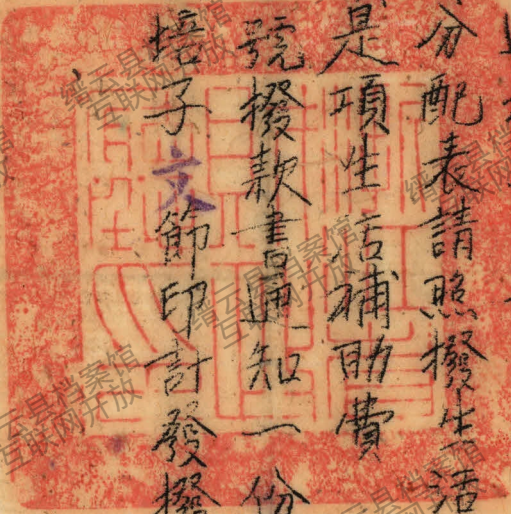 分配表請照撥生活
是項生活補助費
號撥款書通知一份
培子文節印計發撥
缙云县档案馆
互联网开放